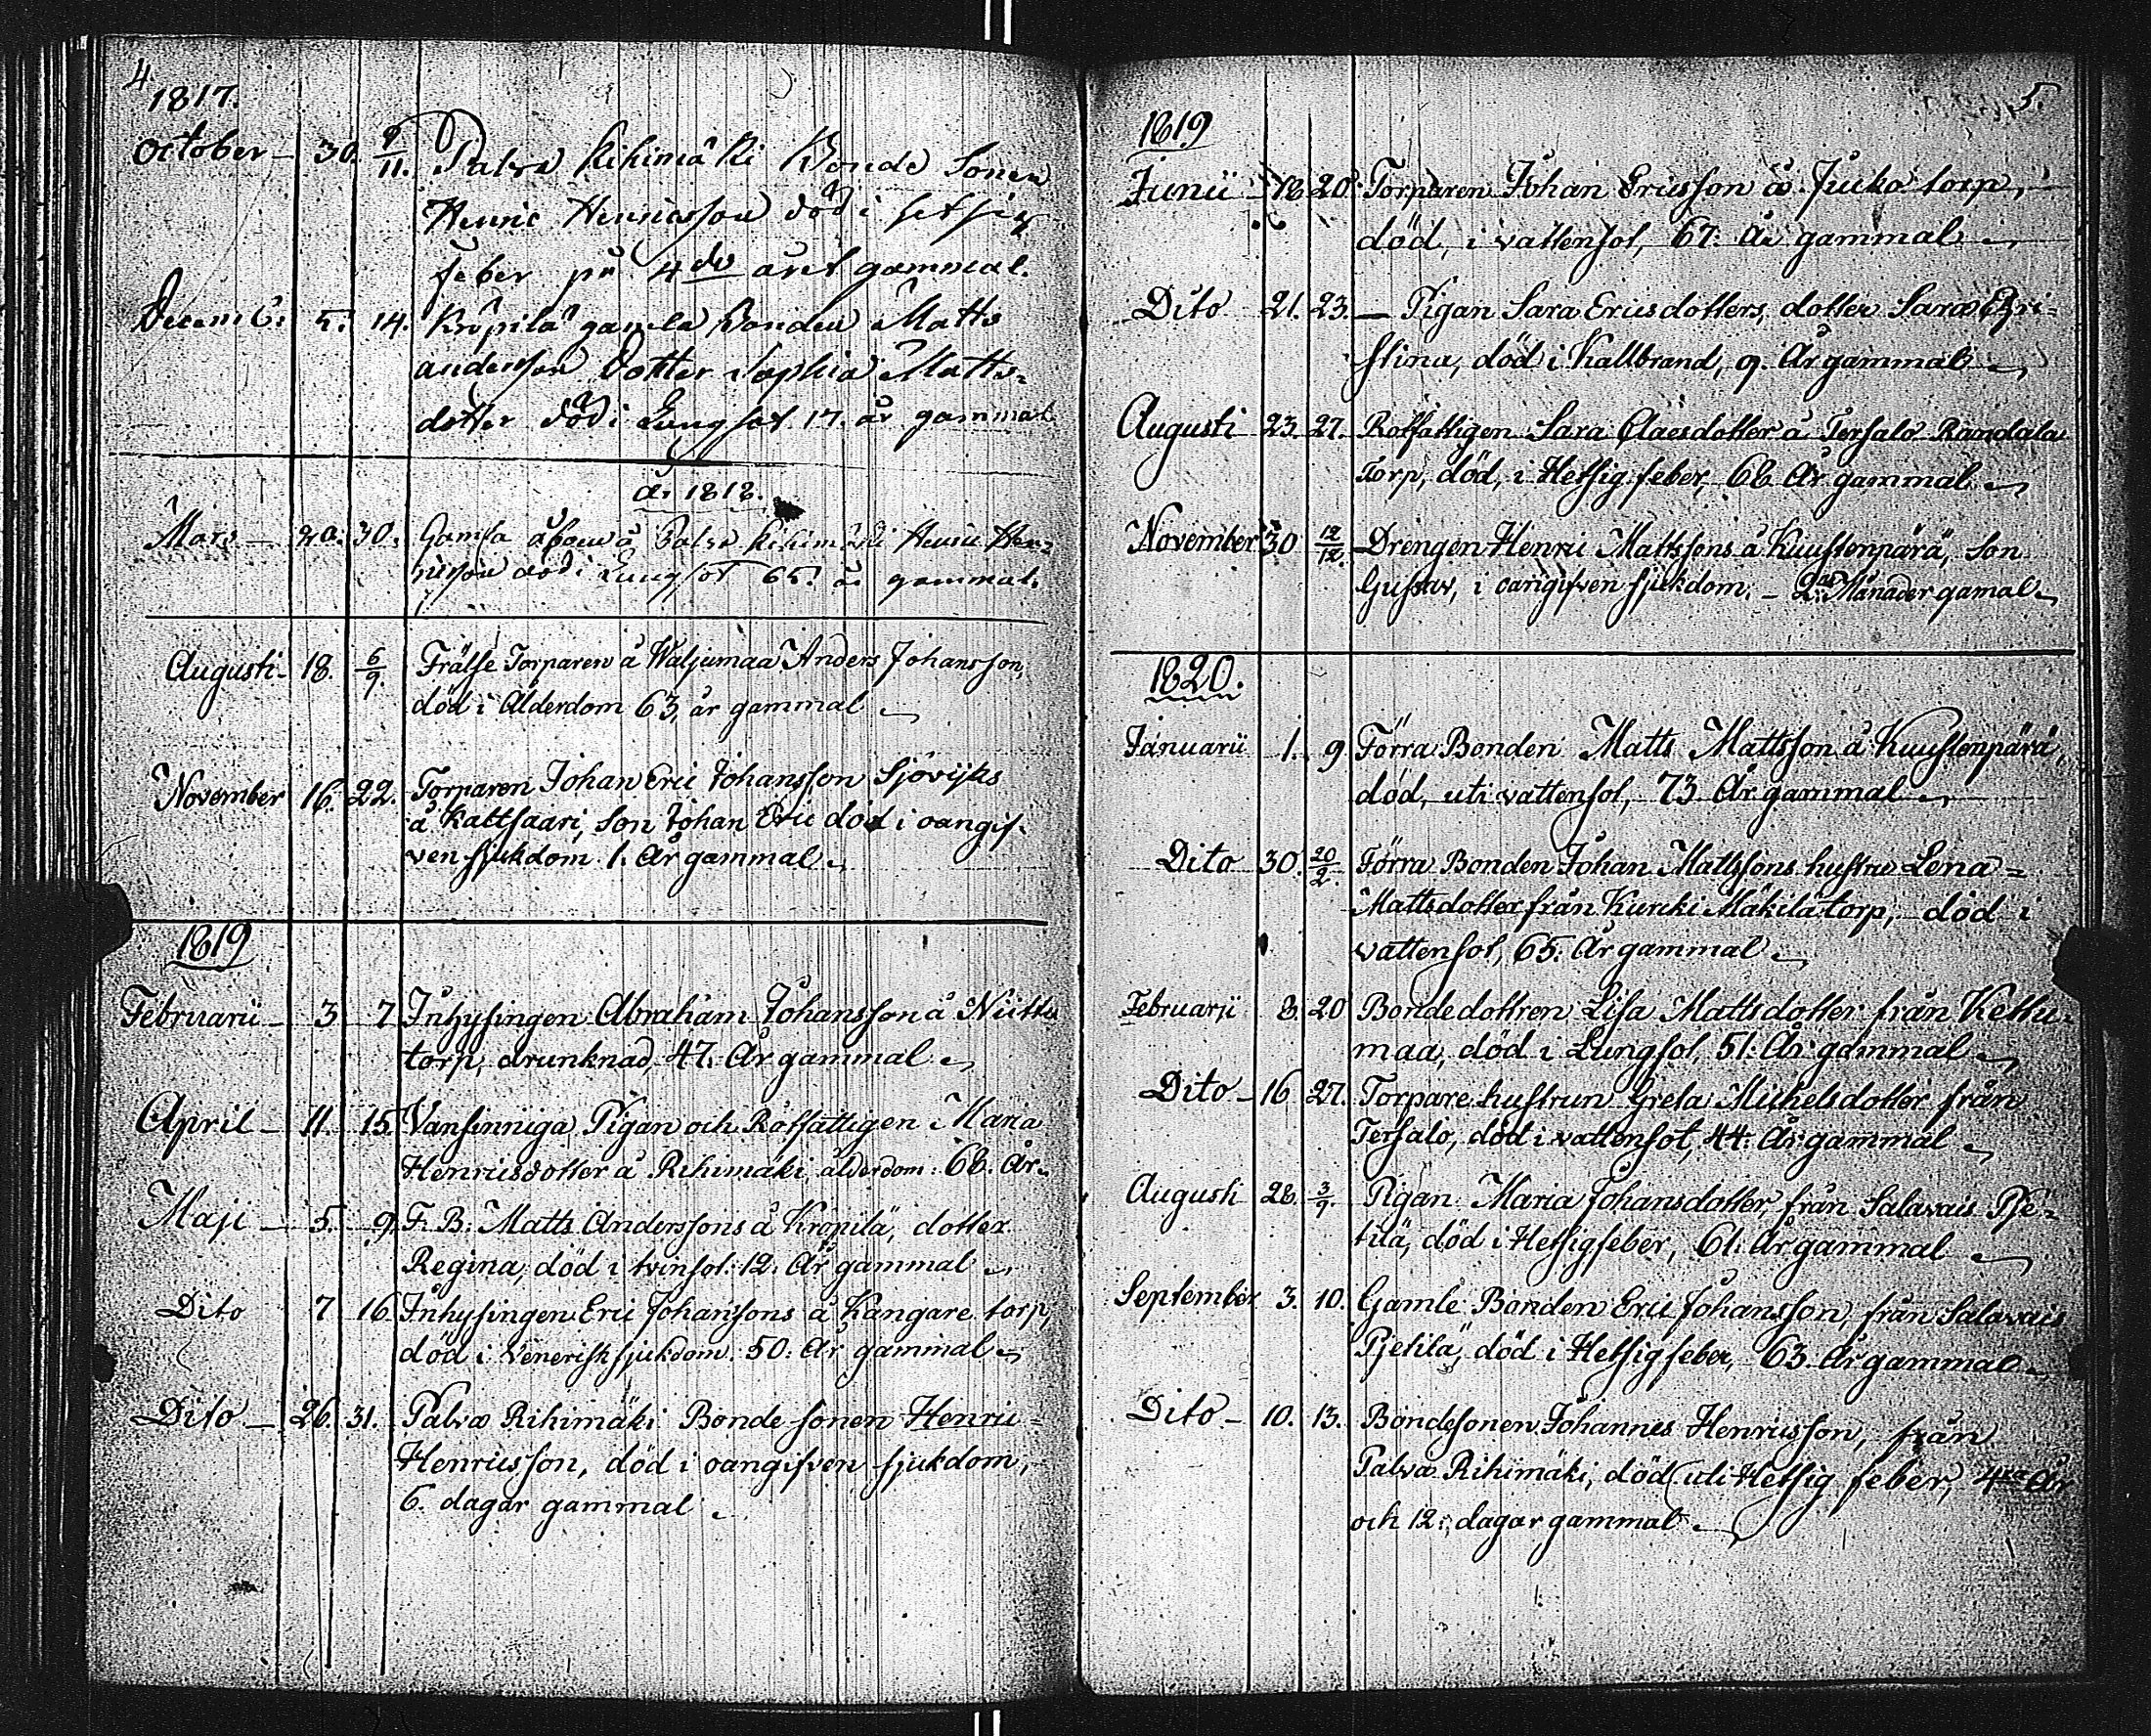 4
1817.
October - 30. 9/11. Palva Rihimäki Bonde Sonen
Henric Henricsson död i hetsig
feber på 4de året gammal.
Decemb: 5. 14. Kröpilä gamla Bonden Matts
andersson Dotter Sophia Matts-
dotter död i Lungsot 17. år gammal
år 1818.
Mars - 20. 30. Gamla åboen å Palva Rihimäki Henric Hen-
ricsson död i Lungsot 65. år gammal.
Augusti - 18. 6/9. Frälse Torparen å Waljumaa Anders Johansson,
död i Ålderdom 63, år gammal
November 16. 22. Torparen Johan Eric Johansson Sjövijks
å Kattsaari, son Johan Eric död i oangif-
ven sjukdom 1. År gammal
1819
Februarii - 3 7 Inhysingen Abraham Johansson å Niittu
torp, drunknad, 47. År gammal
April - 11. 15. Vansinniga Pigan och Rotfattigen Maria
Henricsdotter å Rihimäki, ålderdom: 68. År.
Maji - 5. 9. F. B. Matts Anderssons å Kropilä, dotter
Regina, död i tvinsot. 12. År gammal
Dito 7 16 Inhysingen Eric Johanssons å Kangare torp,
död i Venerisk sjukdom. 50. År gammal
Dito - 26. 31. Palva Rihimäki Bonde sonen Henric
Henricsson, död i oangifven sjukdom,
6. dagar gammal
5.
1819
Junii - 18 20. Torparen Johan Ericsson å Jucka torp,
död, i vattensot, 67. År gammal
Dito 21. 23. - Pigan Sara Ericsdotters, dotter Sara Chri-
stina, död i Kallbrand, 9. År gammal
Augusti 23. 27. Rotfattigen Sara Claesdotter å Tersalo Randala
Torp, död, i Hetsig feber, 68 År gammal
November 30 12/12. Drengen Henric Mattssons å Kuustenpärä, son
Gustav, i oangifven sjukdom. - 2. Månader gamal
1820.
Januarii 1. 9. Förra Bonden Matts Mattsson å Kuustenpärä,
död, uti vattensot, 73 År gammal
Dito 30. 20/2. Förra Bonden Johan Mattssons hustru Lena
Mattsdotter från Kurcki Mäkilä torp, död i
vattensot, 65. År gammal
Februarji 8. 20 Bondedottren Lisa Mattsdotter från Kettu-
maa, död i Lungsot, 51. År gammal
Dito - 16 27. Torpare hustrun Greta Michelsdotter från
Tersalo, död i vattensot, 44. År gammal
Augusti 28. 3/9. Pigan Maria Johansdotter, från Salavais Pje-
tilä, död i Hetsig feber, 61. År gammal
September 3. 10. Gamle Bonden Eric Johansson, från Salavais
Pjetilä, död i Hetsig feber, 63. År gammal
Dito - 10. 13. Bondesonen Johannes Henricsson, från
Palva Rihimäki, död uti Hetsig feber, 4ra År
och 12. dagar gammal